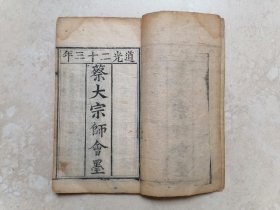 道光二十三年
蔡大宗師會墨